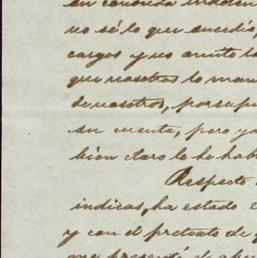 su conocida indolen
no sé lo que sucedió,
cargos y no omito la
que nosotros lo man
de nosotros, por supu
su cuenta, pero ya
bien claro le he hab
Respecto
indicas, ha estado e
y con el pretexto de g
me presenté el apu